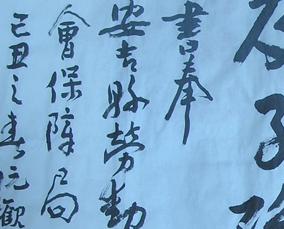 子
書奉
安吉縣勞動
會保障局
己丑之春沅歡